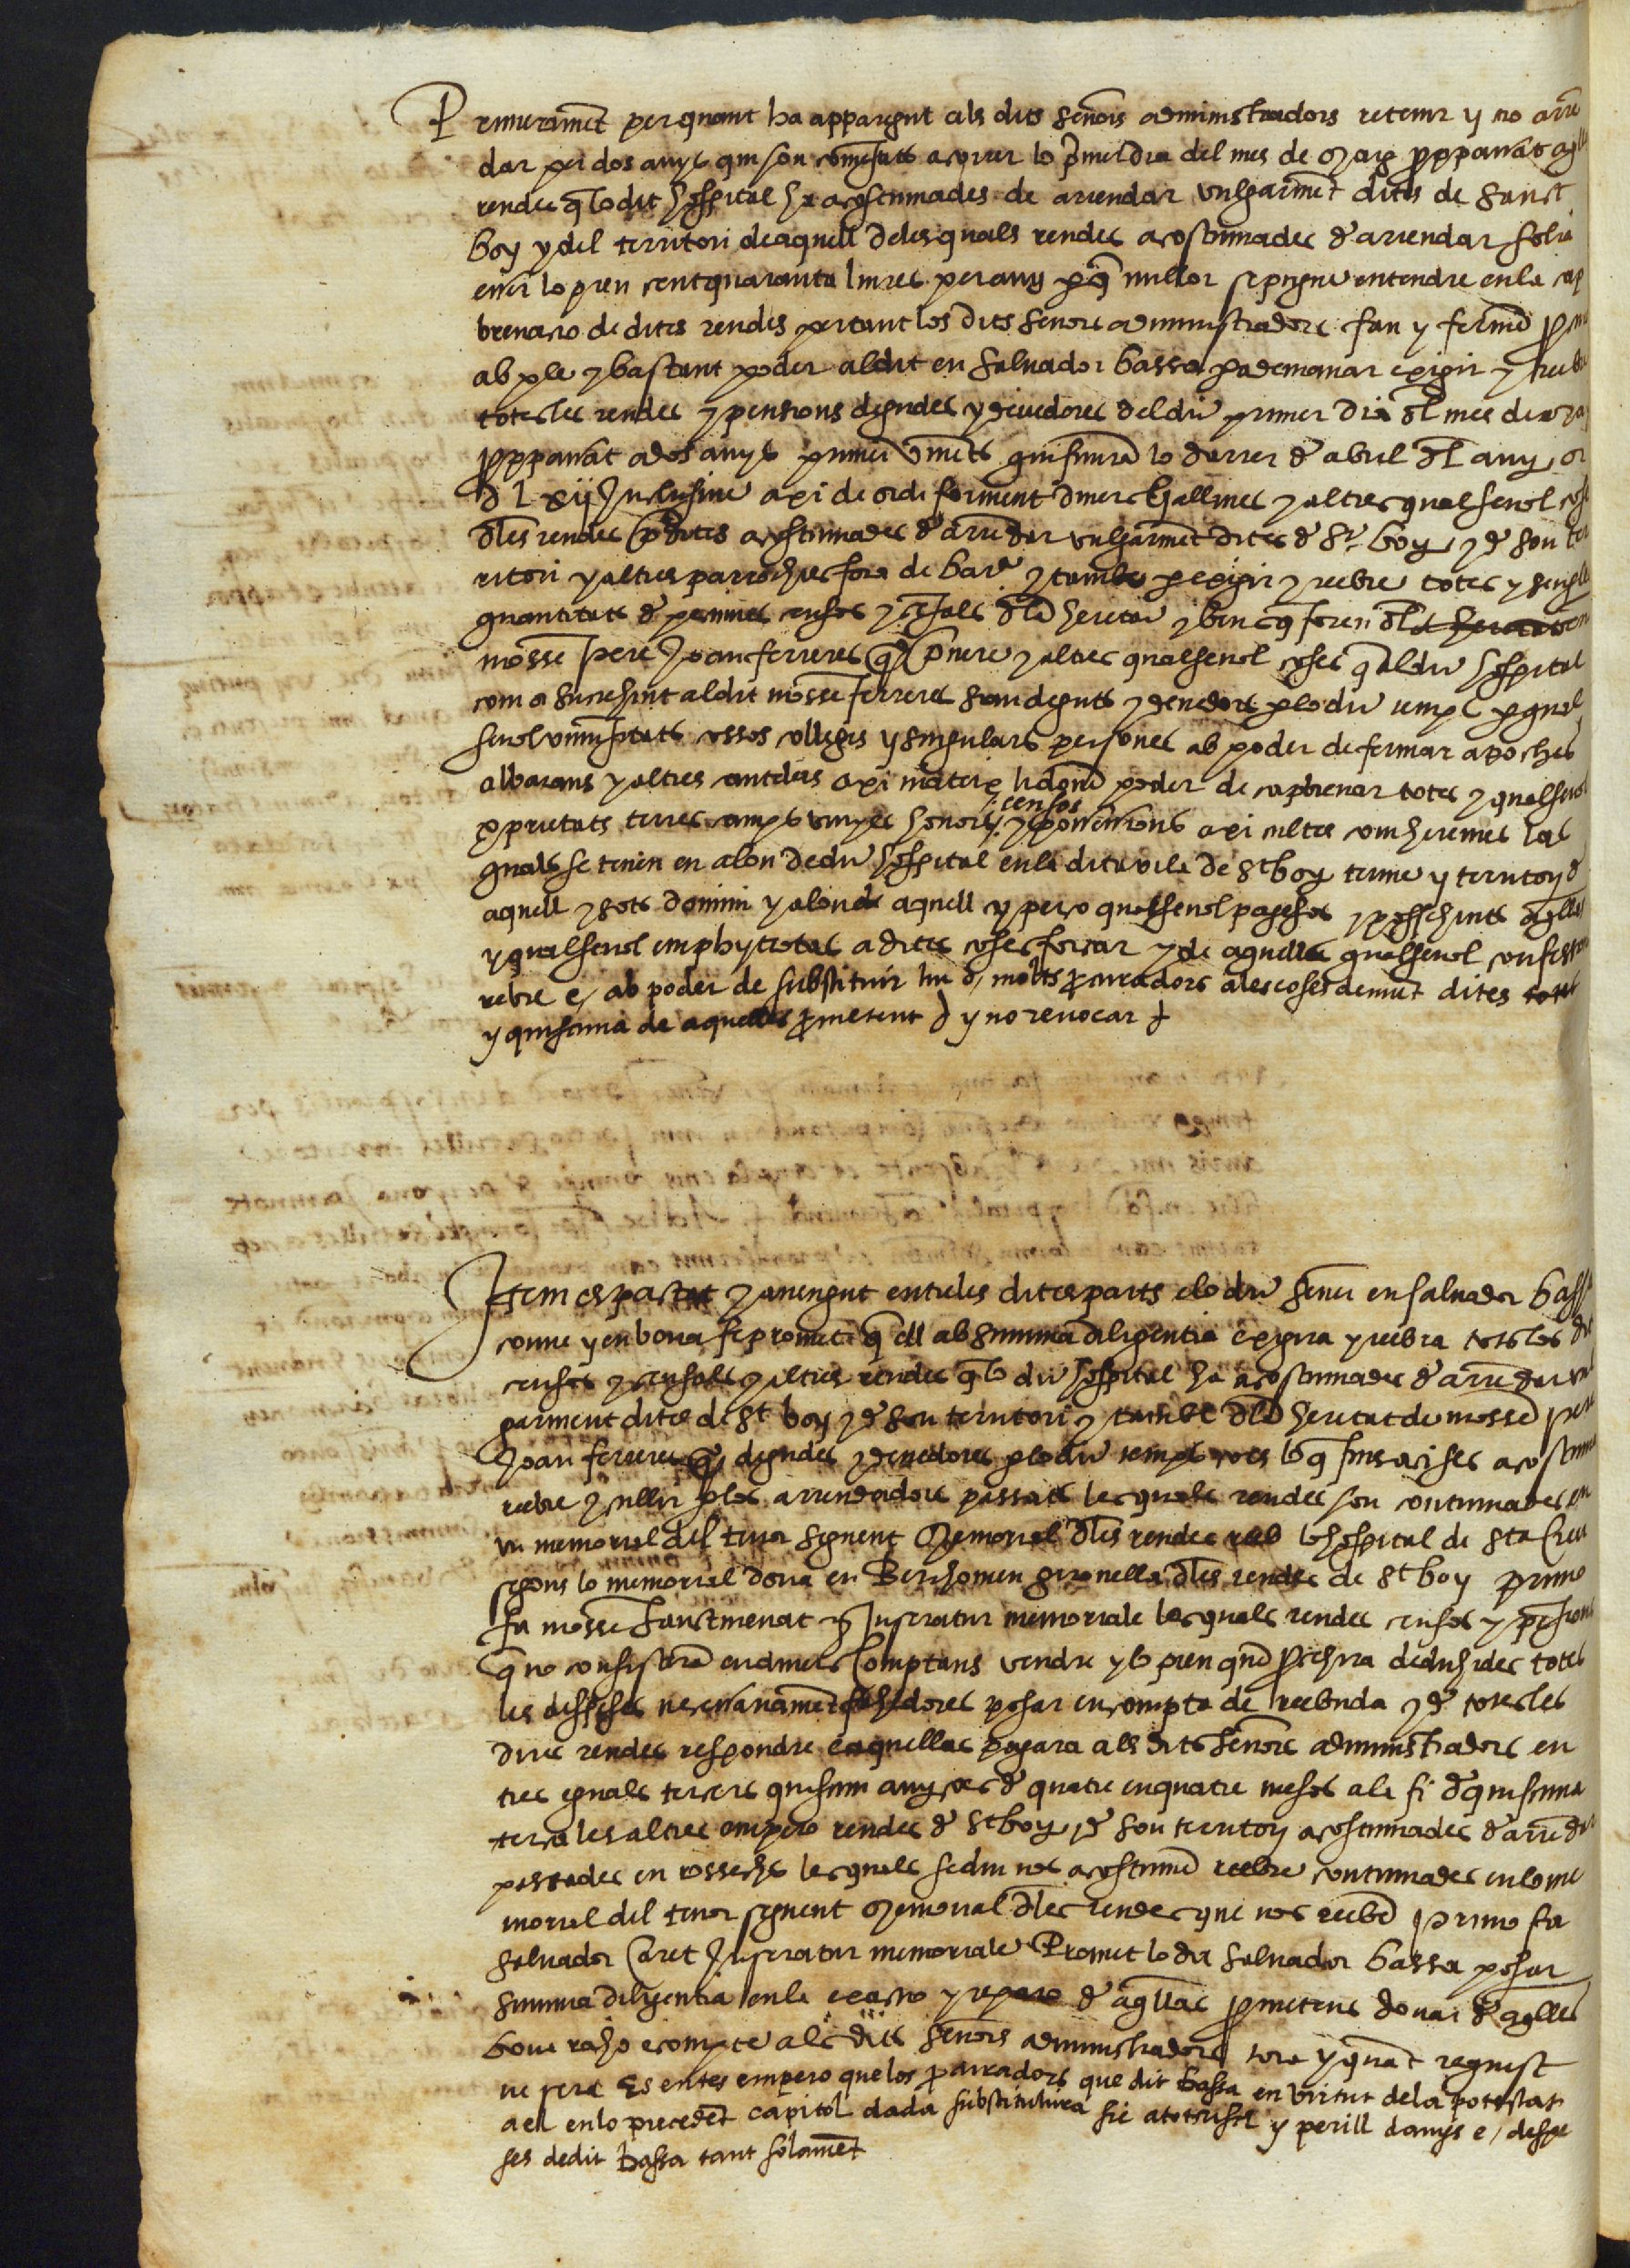 Primerament per quant ha apparegut als dits senors administradors retenir y no arre
dar per dos anys qui son comensats a correr lo primer dia del mes de Maig proppassat aqlles
rendes q lo dit hospital ha acostumades de arrendar vulgarment dites de Sanct
boy y del territori de aquell de les quals rendes acostumades d arrendar solia
esser lo preu cent quaranta liures per any perq millor se pogue entendre en la cap
breuacio de dites rendes per tant los dits senors administradors fan y fermen
ab ple y bastant poder al dit en Saluador bassa per a demanar exigir y reebre
totes les rendes y pensions degudes y deuedores del dit primer dia dl mes de maig
proppassat a dos anys primer vinents qui finira lo darrer d abril dl any
d lxij Inclusiue axi de ordi forment diners Gallines y altres qualseuol coses
dles rendes predites acostumades d arrendar vulgarment dites d St boy y d son ter
ritori y altres parrochies fora de Bar y tambe per exigir y rebre totes y sengles
quantitats d pecunies censos y censals dla heretat y bens q foren dl
mosse Pere Joan ferreres q y altres qualseuol coses q al dit hospital
com a succehint al dit mosse ferreres seran deguts y deuedors per lo dit temps per qual
seuol vniuersitats cossos collegis y singulars persones ab poder de fermar apoches
albarans y altres cauteles axi mateix li donen poder de capbreuar totes y qualseuol
proprietats terres camps vinyes honors censos y possessions axi cultes com hermes las
quals se tenen en alou de dit hospital en la dita vila de St boy terme y territori d
aquell y sots domini y alou de aquell y per ço qualseuol pagesos y possehints aqlles
y qualseuol emphyteotas a dites coses forçar y de aquelles qualseuol confessions
rebre e, ab poder de substituir hu o, molts procuradors a les coses demunt dites totes
y quiscuna de aquelles prometent y no reuocar
Item es pactat y auengut entre les dites parts e lo dit sener en saluador bassa
conue y en bona fe promet q ell ab summa diligentia exigira y reebra tots los dits
censos y censals y altres rendes q lo dit hospital ha acostumades d arrendar vul
garment dites de St boy y d son territori y tambe dla heretat de mosse pere
Joan ferreres degudes y deuedores per lo dit temps ço es lo q fins aci ses acostumat
reebre y cullir per los arrendadors passats les quals rendes son continuades en
vn memorial del tenor seguent Memorial dles rendes reeb lo hospital de sta creu
segons lo memorial dona en Berthomeu gironella dles rendes de St boy primo
fa mosse sanctmenat Inseratur memoriale les quals rendes censos y pensions
q no consistiran en diners comptans vendre y lo preu procehira deduhides totes
les despeses necessariament fahedores posar en compte de rebuda y d totes les
dites rendes respondre e aquellas pagara als dits senors administradors en
tres eguals terçes quiscun any ço es d quatre en quatre mesos a la fi d quiscuna
terça les altres empero rendes d St boy y d son territory acostumades d arrendar
posades en rossechs les quals se diu nos acostumen reebre continuades en lo me
morial del tenor seguent Memorial dles rendes que nos reeben primo fa
Saluador Caret Inseratur memoriale Promet lo dit Saluador bassa posar
summa diligentia en la exactio y d aqllas prometent donar d aqlles
bon raho e compte als dits senors administradors tota y quant request
ne sera Es entes empero que los procuradors que dit bassa en virtut de la potestat
a ell en lo precedent capitol dada substituira sie a tot risch y perill danys e, despe
ses de dit bassa tant solament